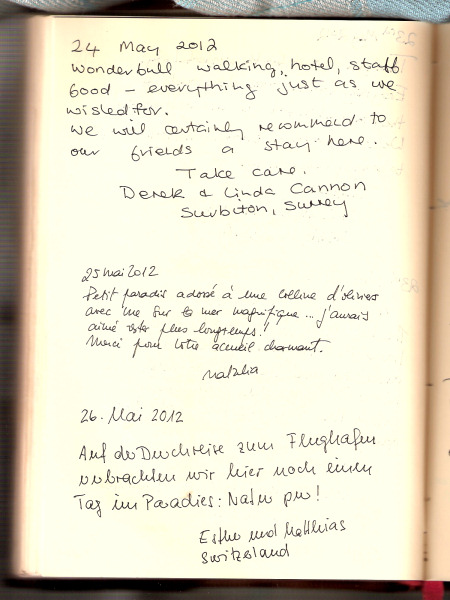 24 May 2012
Wonderfull walking, hotel, staff
food - everything just as we
wished for.
We will certainly recommend to
our friends a stay here.
Take care.
Derek & Linda Cannon
Surbiton, Surrey
25 mai 2012
Petit paradis adossé à une colline d'oliviers
avec vue sur la mer magnifique... j'aurais
aimé rester plus longtemps!
Merci pour votre accueil charmant.
Natalia
26. Mai 2012
Auf der Durchreise zum Flughafen
verbrachten wir hier noch einen
Tag im Paradies: Natur pur!
Esther und Matthias
Switzerland